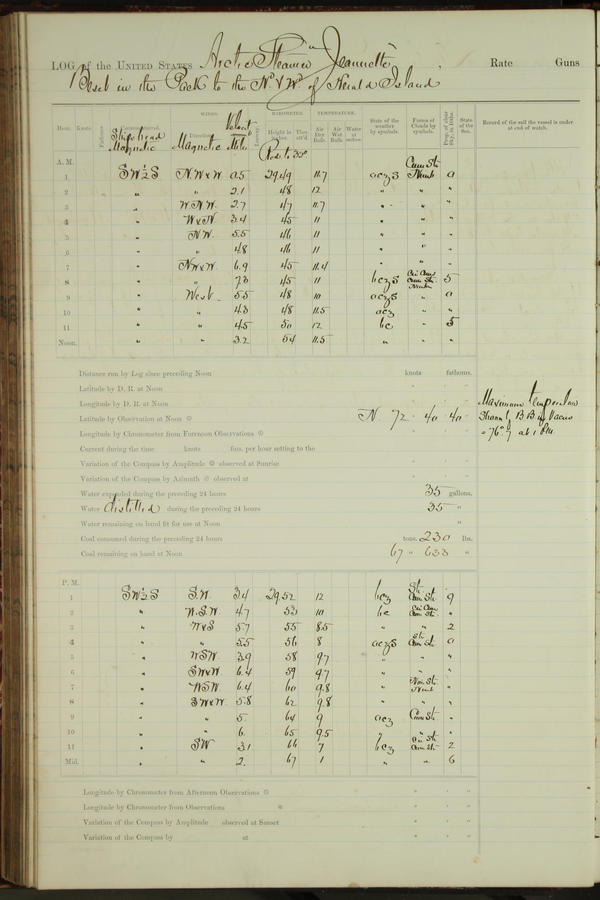 LOG of the UNITED STATES Arctic Steamer Jeannette Rate Guns
Beset in the Pack to the Nd & Wd of Herald Island
WINDS. BAROMETER. TEMPERATURE.
Hour. Knots Ships head Magnetic Direction Magnetic Velocity Miles Height in inches. Ther. att'd. Air Dry Bulb. Air Wet Bulb. Water at surface. State of the weather by symbols. Forms of Clouds by symbols. Prop. of clear Sky, in 10ths. State of the Sea. Record of the sail the vessel is under at end of watch.
A. M. Cum St.
1 SW½S NWxW 0.5 29.49 11.7 oczs Nimb 0
2 " " 2.1 48 12 " " "
3 " WNW. 2.7 47 11.7 " " "
4 " WxN 3.4 45 11 " " "
5 " NW. 5.5 46 11 " " "
6 " " 4.8 46 11 " " "
7 " NWxW. 6.9 45 11.4 " " "
8 " " 7.3 45 11 bczs 5
9 " West 5.5 48 10 oczs " 0
10 " " 4.3 48 11.5 ocz " "
11 " " 4.5 50 12. bc " 5
Noon. " " 3.2 54 11.5 " " "
Distance run by Log since preceding Noon knots fathoms.
Latitude by D. R. at Noon ° ′ ″
Longitude by D. R. at Noon ° ′ ″
Latitude by Observation at Noon N. 72 ° 40 ′ 40 ″
Longitude by Chronometer from Forenoon Observations ° ′ ″
Maximum temperature
Shown by B B in Vacuo
Current during the time knots fms. per hour setting to the
Variation of the Compass by Amplitude observed at Sunrise ° ′ ″
Variation of the Compass by Azimuth observed at ° ′ ″
Water expended during the preceding 24 hours 35 gallons.
Water distilled during the preceding 24 hours 35 "
Water remaining on hand fit for use at Noon "
Coal consumed during the preceding 24 hours tons. 230 lbs.
Coal remaining on hand at Noon 67 " 633 "
P. M. St.
1 SW½S S.W. 3.4 29.52 12 bcz Cum St. 9
2 " W.S.W. 4.7 53 10 bc "
3 " WxS 5.7 55 8.5 " " 2
4 " " 5.5 56 8 oczs Cum St. 0
5 " WSW. 3.9 58 9.7 " " "
6 " SWxW. 6.4 59 9.7 " " "
7 " WSW 6.4 60 9.8 " "
8 " SWxW. 5.8 62 9.8 " " "
9 " " 5. 64 9 ocz Cum St. "
10 " " 6. 65 9.5 " " "
11 " SW 3.1 66 7 bcz Cum St. 2
Mid. " " 2. 67 1 " " 6
Longitude by Chronometer from Afternoon Observations ° ′ ″
Longitude by Chronometer from Observations ° ′ ″
Variation of the Compass by Amplitude observed at Sunset ° ′ ″
Variation of the Compass by at ° ′ ″